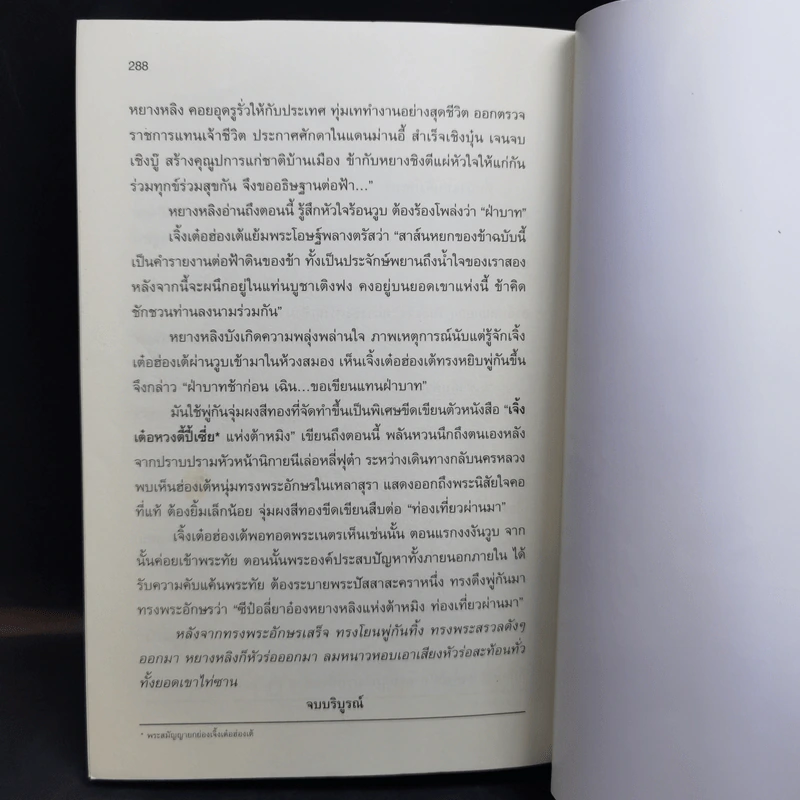 288
หยางหลิง คอยอุดรูรั่วให้กับประเทศ ทุ่มเททำงานอย่างสุดชีวิต ออกตรวจ
ราชการแทนเจ้าชีวิต ประกาศศักดาในแดนม่านอี้ สำเร็จเชิงบุ๋น เจนจบ
เชิงบู๊ สร้างคุณูปการแก่ชาติบ้านเมือง ข้ากับหยางชิงตีแผ่หัวใจให้แก่กัน
ร่วมทุกข์ร่วมสุขกัน จึงขออธิษฐานต่อฟ้า...”
หยางหลิงอ่านถึงตอนนี้ รู้สึกหัวใจร้อนวูบ ต้องร้องโพล่งว่า “ฝ่าบาท”
เจิ้งเต๋อฮ่องเต้แย้มพระโอษฐ์พลางตรัสว่า “สาส์นหยกของข้าฉบับนี้
เป็นคำรายงานต่อฟ้าดินของข้า ทั้งเป็นประจักษ์พยานถึงน้ำใจของเราสอง
หลังจากนี้จะผนึกอยู่ในแท่นบูชาเติงฟง คงอยู่บนยอดเขาแห่งนี้ ข้าคิด
ชักชวนท่านลงนามร่วมกัน”
หยางหลิงบังเกิดความพลุ่งพล่านใจ ภาพเหตุการณ์นับแต่รู้จักเจิ้ง
เต๋อฮ่องเต้ผ่านวูบเข้ามาในห้วงสมอง เห็นเจิ้งเต๋อฮ่องเต้ทรงหยิบพู่กันขึ้น
จึงกล่าว “ฝ่าบาทช้าก่อน เฉิน...ขอเขียนแทนฝ่าบาท”
มันใช้พู่กันจุ่มผงสีทองที่จัดทำขึ้นเป็นพิเศษขีดเขียนตัวหนังสือ “เจิ้ง
เต๋อหวงตี้ปี้เซี่ย* แห่งต้าหมิง” เขียนถึงตอนนี้ พลันหวนนึกถึงตนเองหลัง
จากปราบปรามหัวหน้านิกายนีเล่อหลี่ฟุต๋า ระหว่างเดินทางกลับนครหลวง
พบเห็นฮ่องเต้หนุ่มทรงพระอักษรในเหลาสุรา แสดงออกถึงพระนิสัยใจคอ
ที่แท้ ต้องยิ้มเล็กน้อย จุ่มผงสีทองขีดเขียนสืบต่อ “ท่องเที่ยวผ่านมา”
เจิ้งเต๋อฮ่องเต้พอทอดพระเนตรเห็นเช่นนั้น ตอนแรกงงงันวูบ จาก
นั้นค่อยเข้าพระทัย ตอนนั้นพระองค์ประสบปัญหาทั้งภายนอกภายใน ได้
รับความคับแค้นพระทัย ต้องระบายพระปัสสาสะคราหนึ่ง ทรงดึงพู่กันมา
ทรงพระอักษรว่า “ซีป๋อลี่ยาอ๋องหยางหลิงแห่งต้าหมิง ท่องเที่ยวผ่านมา”
หลังจากทรงพระอักษรเสร็จ ทรงโยนพู่กันทิ้ง ทรงพระสรวลดังๆ
ออกมา หยางหลิงก็หัวร่อออกมา ลมหนาวหอบเอาเสียงหัวร่อสะท้อนทั่ว
ทั้งยอดเขาไท่ซาน
จบบริบูรณ์
* พระสมัญญายกย่องเจิ้งเต๋อฮ่องเต้